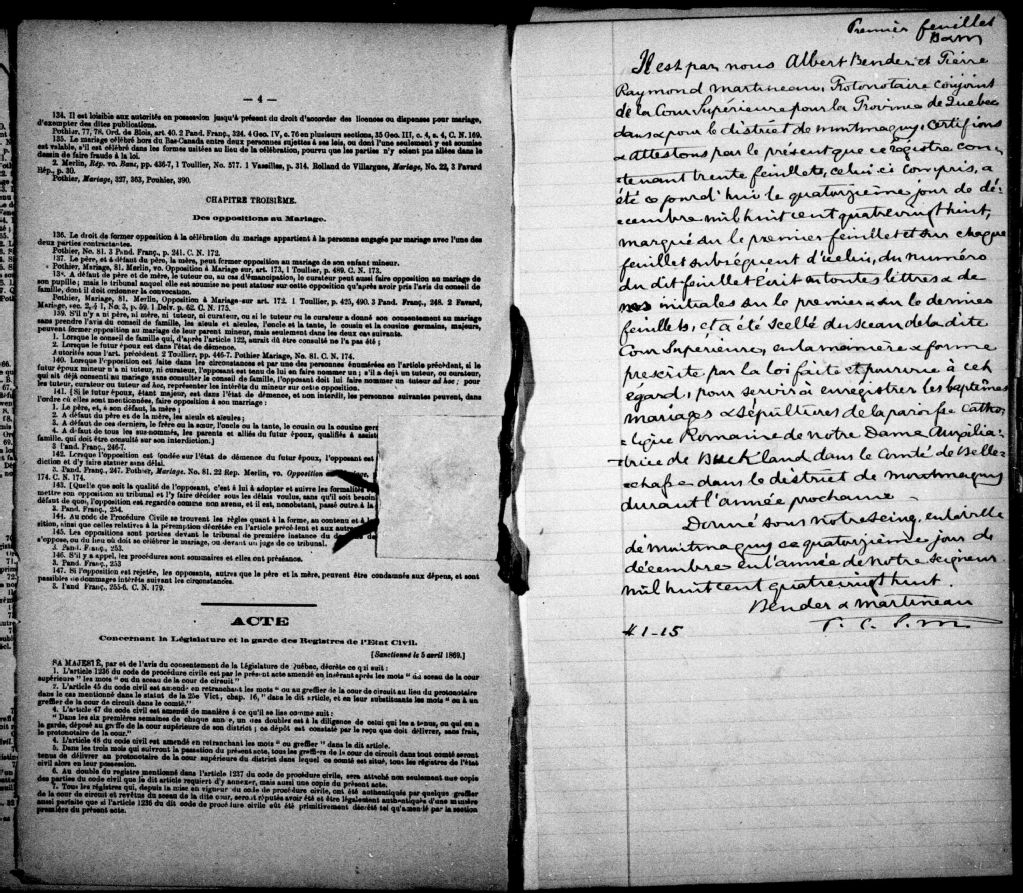 — 4 —
134. Il est loisible aux autorités en possession jusqu'à présent du droit d'accorder des licences ou dispenses pour mariage,
d'exempter des dites publications.
Pothier, 77, 78. Ord. de Blois, art. 40. 2 Pand. Franç., 324. 4 Geo. IV, c. 76 en plusieurs sections, 35 Geo. III, c. 4, s. 4, C. N. 169.
135. Le mariage célébré hors du Bas-Canada entre deux personnes sujettes à ses lois, ou dont l'une seulement y est soumise
est valable, s'il est célébré dans les formes usitées au lieu de la célébration, pourvu que les parties n'y soient pas allées dans le
dessin de faire fraude à la loi.
2. Merlin, Rép. vo. Banc, pp. 436-7, 1 Toullier, No. 577. 1 Vaseilles, p. 314. Rolland de Villargues, Mariage, No. 22, 3 Favard
Rép., p. 30.
Pothier, Mariage, 327, 363, Pouhier, 390.
CHAPITRE TROISIÈME.
Des oppositions au Mariage.
136. Le droit de former opposition à la célébration du mariage appartient à la personne engagée par mariage avec l'une des
deux parties contractantes.
Pothier, No. 81. 3 Pand. Franç., p. 241. C. N. 172.
137. Le père, et à défaut du père, la mère, peut former opposition au mariage de son enfant mineur.
Pothier, Mariage, 81. Merlin, vo. Opposition à Mariage sur, art. 173, 1 Toullier, p. 489. C. N. 173.
138. A défaut de père et de mère, le tuteur, et, au cas d'émancipation, le curateur peut aussi faire opposition au mariage de
son pupille; mais le tribunal auquel elle est soumise ne peut statuer sur cette opposition qu'après avoir pris l'avis du conseil de
famille, dont il doit ordonner la convocation.
Pothier, Mariage, 81. Merlin, Opposition à Mariage sur art. 172. 1 Toullier, p. 425, 490. 3 Pand. Franç., 248. 2 Favard,
Mariage, sec. 2, § 1, No. 3, p. 59. 1 Delv. p. 62. C. N. 175.
139. S'il n'y a ni père, ni mère, ni tuteur, ni curateur, ou si le tuteur ou le curateur a donné son consentement au mariage
sans prendre l'avis du conseil de famille, les aïeuls et aïeules, l'oncle et la tante, le cousin et la cousine germains, majeurs,
peuvent former opposition au mariage de leur parent mineur, mais seulement dans les deux cas suivants.
1. Lorsque le conseil de famille qui, d'après l'article 122, aurait dû être consulté ne l'a pas été;
2. Lorsque le futur époux est dans l'état de démence.
Autorités sous l'art. précédent 2 Toullier, pp. 446-7. Pothier Mariage, No. 81. C. N. 174.
140. Lorsque l'opposition est faite dans les circonstances et par une des personnes énumérées en l'article précédent, si le
futur époux mineur n'a ni tuteur, ni curateur, l'opposant est tenu de lui en faire nommer un; s'il a déjà un tuteur, ou curateur,
qui ait déjà consenti au mariage sans consulter le conseil de famille, l'opposant doit lui faire nommer un tuteur ad hoc; pour
les tuteur, curateur ou tuteur ad hoc, représenter les intérêts du mineur sur cette opposition.
141. [Si le futur époux, étant majeur, est dans l'état de démence, et non interdit, les personnes suivantes peuvent, dans
l'ordre où elles sont mentionnées, faire opposition à son mariage:
1. Le père, et, à son défaut, la mère;
2. A défaut du père et de la mère, les aïeuls et aïeules;
3. A défaut de ces derniers, le frère ou la sœur, l'oncle ou la tante, le cousin ou la cousine ger
4. A défaut de tous les sus-nommés, les parents et alliés du futur époux, qualifiés à assist
famille, qui doit être consulté sur son interdiction.]
3 Pand. Franç., 246-7.
142. Lorsque l'opposition est fondée sur l'état de démence du futur époux, l'opposant est
diction et d'y faire statuer sans délai.
3. Pand. Franç., 247. Pothier, Mariage. No. 81. 22 Rep. Merlin, vo. Opposition
174. C. N. 174.
143. [Quelle que soit la qualité de l'opposant, c'est à lui à adopter et suivre les formalités
mettre son opposition au tribunal et l'y faire décider sous les délais voulus, sans qu'il soit besoin
défaut de quoi, l'opposition est regardée comme non avenu, et il est, nonobstant, passé outre à la
3. Pand. Franç., 254.
144. Au code de Procédure Civile se trouvent les règles quant à la forme, au contenu et à l
sition, ainsi que celles relatives à la péremption décrétée en l'article précédent et aux autres
145. Les oppositions sont portées devant le tribunal de première instance du
s'oppose, ou du lieu où doit se célébrer le mariage, ou devant un juge de ce tribunal.
3. Pand. Franç., 253.
146. S'il y a appel, les procédures sont sommaires et elles ont préséance.
3. Pand. Franç., 253
147. Si l'opposition est rejetée, les opposants, autres que le père et la mère, peuvent être condamnés aux dépens, et sont
passibles de dommages intérêts suivant les circonstances.
3. Pand Franç., 255-6. C. N. 179.
ACTE
Concernant la Législature et la garde des Registres de l'Etat Civil.
[Sanctionné le 5 avril 1869.]
SA MAJESTÉ, par et de l'avis du consentement de la Législature de Québec, décrète ce qui suit:
1. L'article 1236 du code de procédure civile est par le présent acte amendé en insérant après les mots " du sceau de la cour
supérieure " les mots " ou du sceau de la cour de circuit."
2. L'article 45 du code civil est amendé en retranchant les mots " ou au greffier de la cour de circuit au lieu du protonotaire
dans le cas mentionné dans le statut de la 25e Vict., chap. 16, " dans le dit article, et en leur substituant les mots " ou à un
greffier de la cour de circuit dans le comté."
4. L'article 47 du code civil est amendé de manière à ce qu'il se lise comme suit:
" Dans les six premières semaines de chaque année, un des doubles est à la diligence de celui qui les a tenus, ou qui en a
la garde, déposé au greffe de la cour supérieure de son district; ce dépôt est constaté par le reçu que doit délivrer, sans frais,
le protonotaire de la cour."
4. L'article 48 du code civil est amendé en retranchant les mots " ou greffier " dans le dit article.
5. Dans les trois mois qui suivront la passation du présent acte, tous les greffiers de la cour de circuit dans tout comté seront
tenus de délivrer au protonotaire de la cour supérieure du district dans lequel ce comté est situé, tous les registres de l'état
civil alors en leur possession.
6. Au double du registre mentionné dans l'article 1237 du code de procédure civile, sera attaché non seulement une copie
des parties du code civil que le dit article requiert d'y annexer, mais aussi une copie du présent acte.
7. Tous les registres qui, depuis la mise en vigueur du code de procédure civile, ont été authentiqués par quelque greffier
de la cour de circuit et revêtus du sceau de la dite cour, seront réputés avoir été et être légalement authentiqués d'une manière
aussi parfaite que si l'article 1236 du dit code de procédure civile eût été primitivement décrété tel qu'amendé par la section
première du présent acte.
Premier feuillet
B&M
Il est par nous Albert Bender et Pierre
Raymond Martineau, Protonotaire conjoint
de la Cour Supérieure pour la Province de Quebec
dans & pour le district de Montmagny, certifions
& attestons par le présent que ce registre con-
tenant trente feuillets, celui ci compris, a
été ce jourd'hui le quatorzième jour de dé-
cembre mil huit cent quatrevingt huit,
marqué sur le premier feuillet et sur chaque
feuillet subséquent d'icelui, du numéro
du dit feuillet écrit en toutes lettres & de
nos initiales sur le premier & sur le dernier
feuillets, et a été scellé du sceau de la dite
Cour Supérieure, en la manière & forme
prescrite par la loi faite et pourvue à cet
égard, pour servir à enregistrer les baptêmes
mariages & sépultures de la paroisse Catho-
lique Romaine de Notre Dame Auxilia-
trice de Buckland dans le Comté de Belle-
chasse dans le district de Montmagny
durant l'année prochaine
Donné sous notre seing, en la ville
de Montmagny ce quatorzième jour de
décembre en l'année de Notre Seigneur
mil huit cent quatrevingt huit.
Bender & Martineau
P. C. S. M
# 1-15